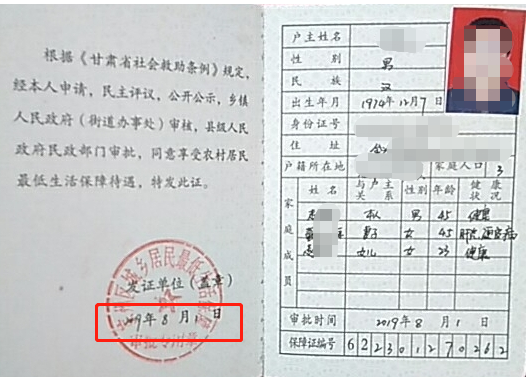 根据《甘肃省社会救助条例》规定,
经本人申请,民主评议,公开公示,乡镇
人民政府(街道办事处)审核,县级人民
政府民政部门审批,同意享受农村居民
最低生活保障待遇,特发此证。
发证单位(盖章)
年8月1日
城乡居民最低生活保障
审批专用章
户主姓名
性别 男
民族 汉
出生年月 1974年12月7日
身份证号
住址
户籍所在地 家庭人口 3
家庭成员
姓名 与户主关系 性别 年龄 健康状况
本人 男 45 健康
妻子 女 45
女儿 女 23 健康
审批时间 2019年8月1日
保障证编号 622301270262